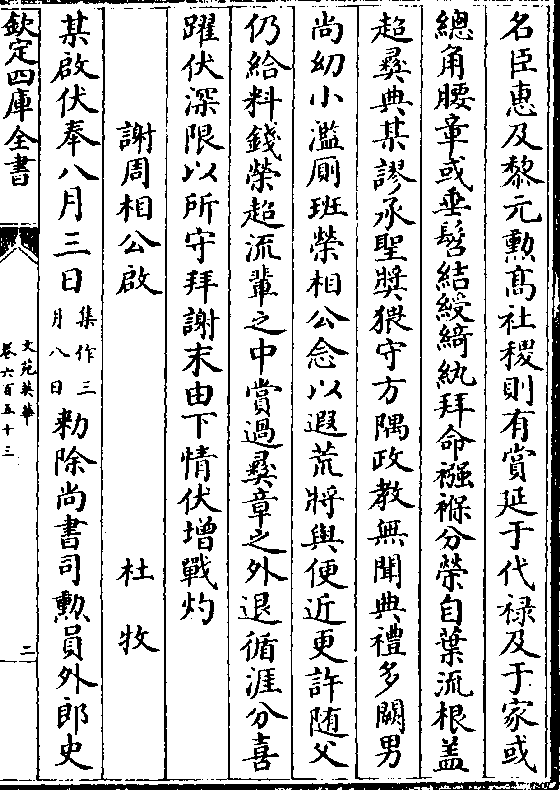 名臣惠及黎元勲髙社稷則有賞延于代禄及于家或
總角腰章或垂髫結綬綺紈拜命襁褓分榮自葉流根盖
超彛典某謬承聖奬猥守方隅政教無聞典禮多闕男
尚幼小濫厠班榮相公念以遐荒將與便近更許随父
仍給料錢榮超流輩之中賞過彛章之外退循涯分喜
躍伏深限以所守拜謝末由下情伏增戰灼
謝周相公啟 杜牧
某啟伏奉八月三日集作三月八日勑除尚書司勲員外郎史
欽定四庫全書
文苑英華
卷六百五十三
二